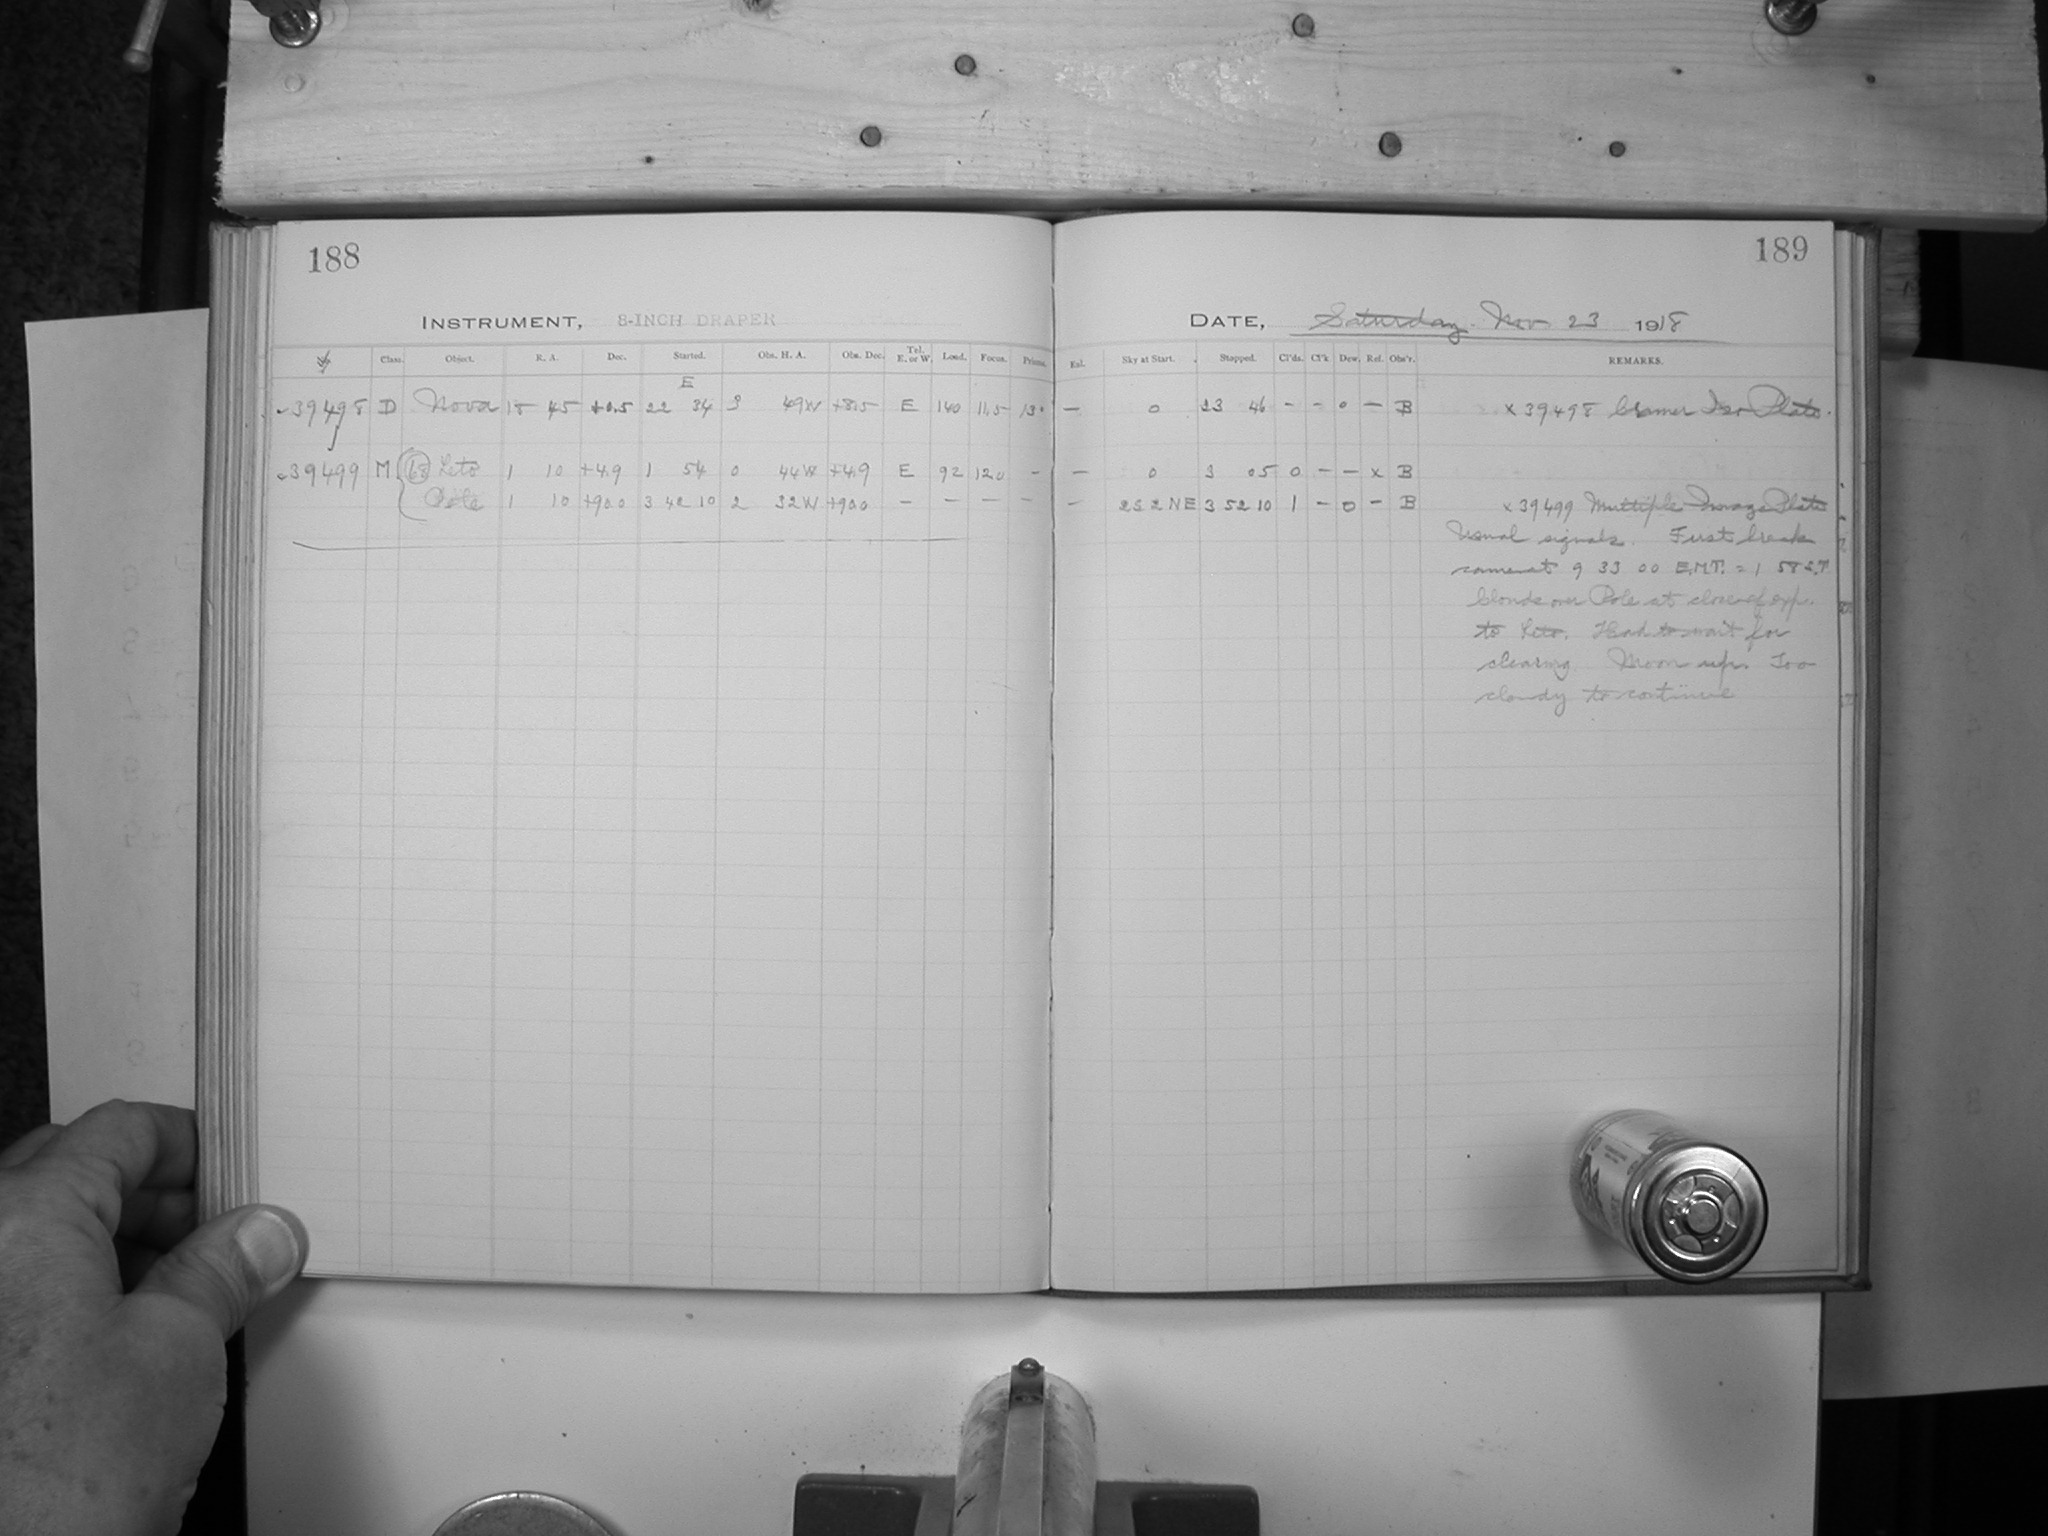 188
189
INSTRUMENT, 8-INCH DRAPER
DATE, Saturday. Nov 23 1918
Class. Object. R. A. Dec. Started. Obs. H. A. Obs. Dec. Tel. E. or W. Load. Focus. Prisms. Enl. Sky at Start. Stopped. Cl'ds. Cl'k Dew. Ref. Obs'r. REMARKS.
E
39498 D Nova 18 45 +0.5 22 34 3 49W +8.5 E 140 11.5 13° — 0 23 46 – – 0 – B x 39498 Cramer Iso Plate.
39499 M 68 Leto 1 10 +4.9 1 54 0 44W +4.9 E 92 12.0 – — 0 3 05 0 – – x B
Pole 1 10 +90.0 3 42 10 2 32W +90.0 – – – – – 2S 2NE 3 52 10 1 – 0 – B x 39499 Multiple Image Plate
Usual signals. First break
came at 9 33 00 E.M.T. = 1 58 S.T.
Clouds over Pole at close of exp.
to Leto. Had to wait for
clearing Moon up. Too
cloudy to continue